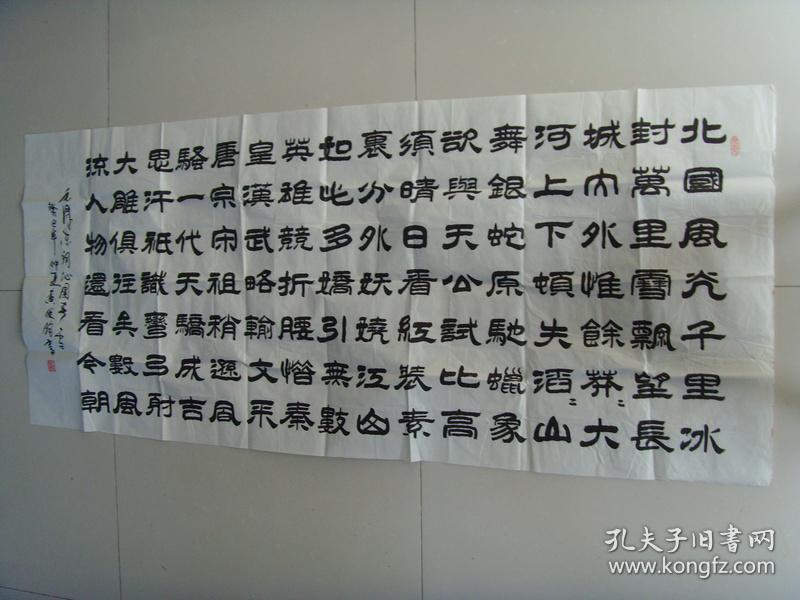 北國風光千里冰
封萬里雪飄望長
城內外惟餘莽〻大
河上下頓失滔〻山
舞銀蛇原馳蠟象
欲與天公試比高
須晴日看紅裝素
裹分外妖嬈江山
如此多嬌引無數
英雄競折腰惜秦
皇漢武略輸文采
唐宗宋祖稍遜風
騷一代天驕成吉
思汗衹識彎弓射
大雕俱往矣數風
流人物還看今朝
毛澤東詞沁園春雪
癸巳年仲夏書
孔夫子旧书网
www.kongfz.com